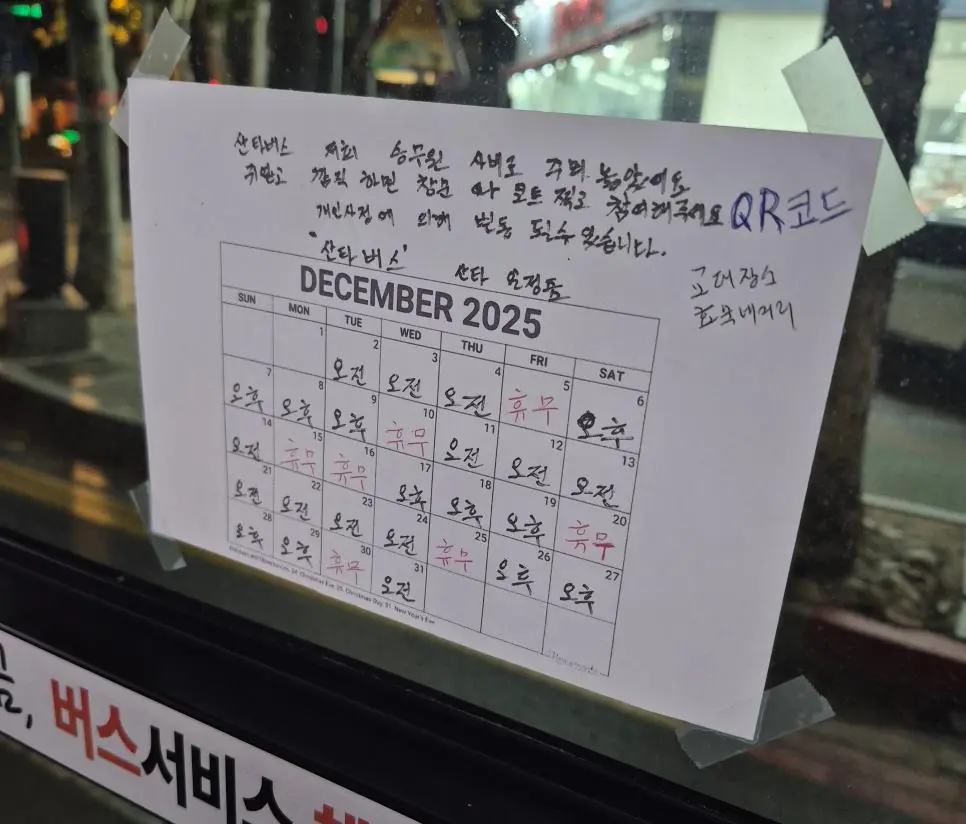 산타버스 저희 승무원 사비로 꾸며 놓았어요
깜찍 하면 창문 찍고 참여해주세요 QR코드
개인사정에 의해 변동 될수 있습니다.
'산타버스' 산타
교대장소
효목네거리
DECEMBER 2025
SUN MON TUE WED THU FRI SAT
1 2 3 4 5 6
오전 오전 오전 휴무 오후
7 8 9 10 11 12 13
오후 오후 오후 휴무 오전 오전 오전
14 15 16 17 18 19 20
오전 휴무 휴무 오후 오후 오후 휴무
21 22 23 24 25 26 27
오전 오전 오전 오전 휴무 오후 오후
28 29 30 31
오후 오후 휴무 오전
24: Christmas Eve, 25: Christmas Day, 31: New Year's Eve
버스서비스